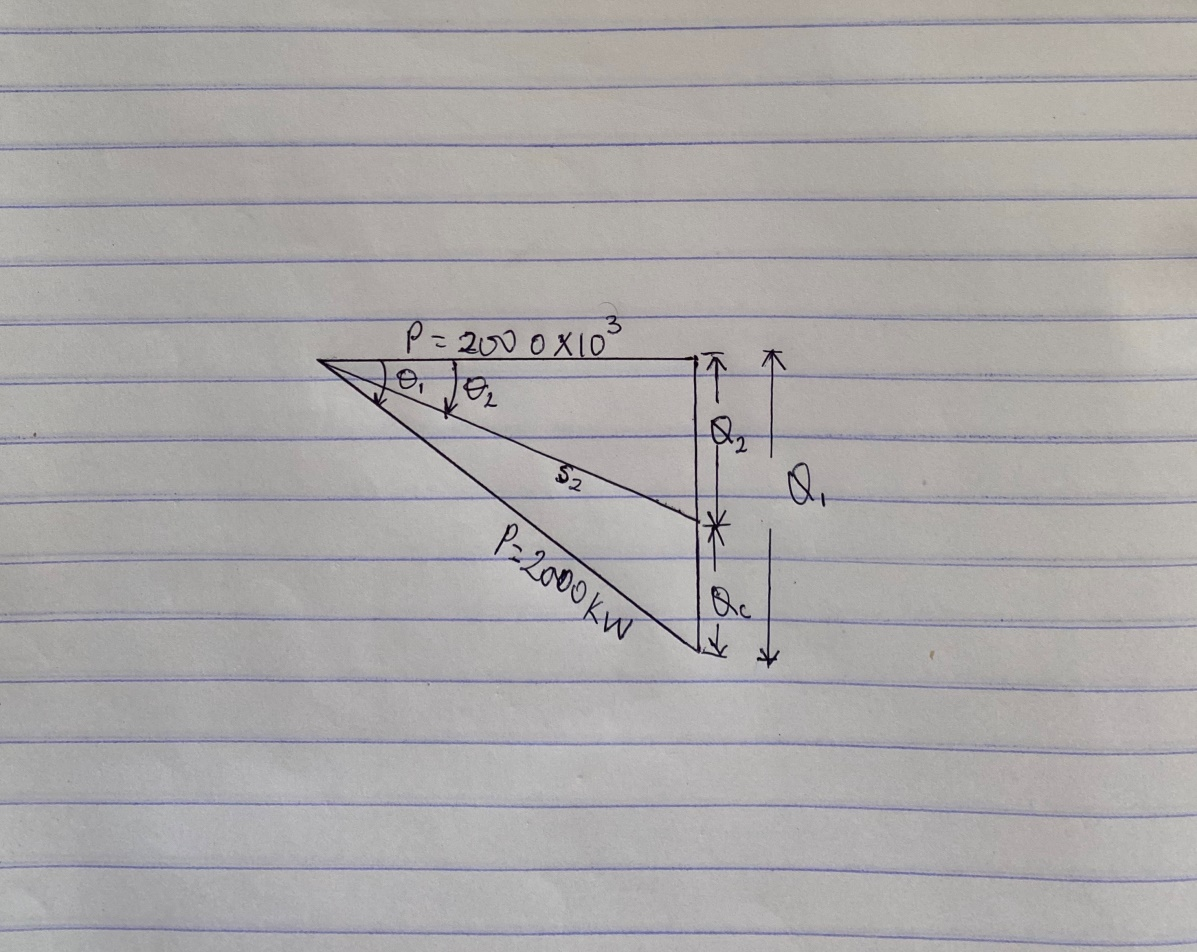 P = 2000×10³
θ₁
θ₂
Q₂
S₂
Q₁
P=2000KW
Qc